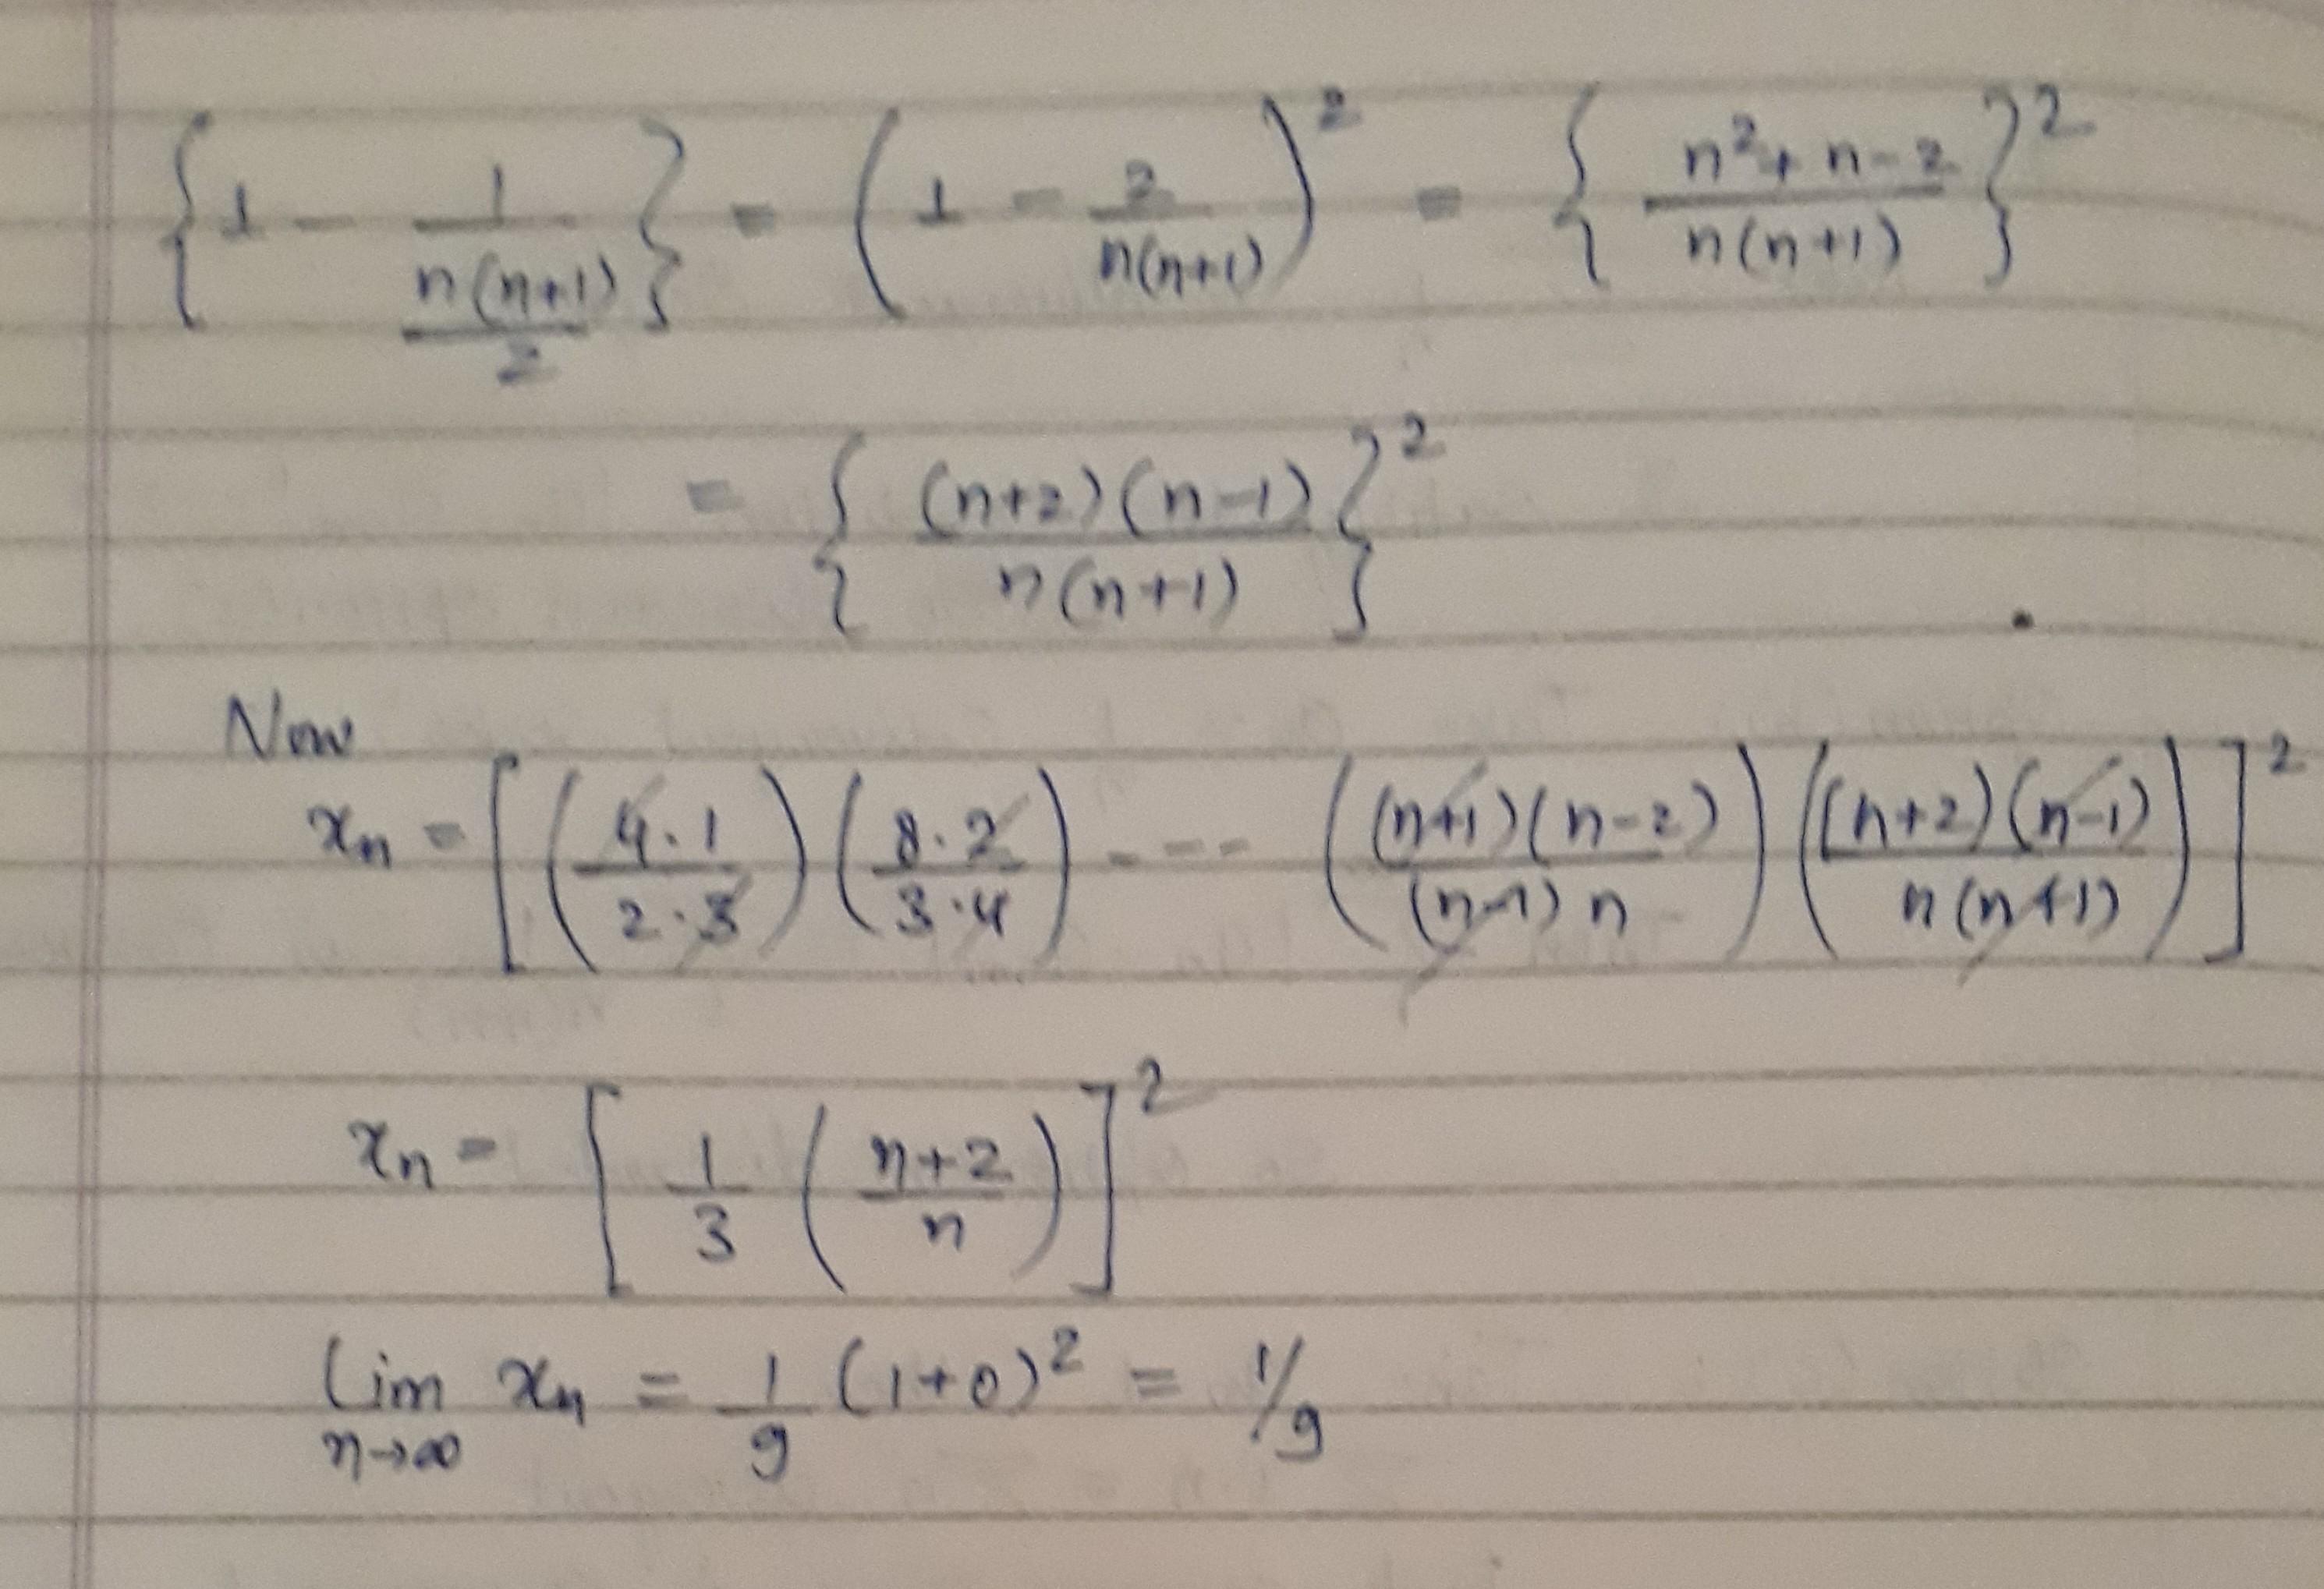 {1 - 1/(n(n+1)/2)} = (1 - 2/(n(n+1)))² = {(n²+n-2)/(n(n+1))}²
= {((n+2)(n-1))/(n(n+1))}²
Now
xₙ = [((4·1)/(2·3)) ((8·2)/(3·4)) ---- (((n+1)(n-2))/((n-1)n)) (((n+2)(n-1))/(n(n+1)))]²
xₙ = [1/3 ((n+2)/n)]²
lim n→∞ xₙ = 1/9 (1+0)² = 1/9